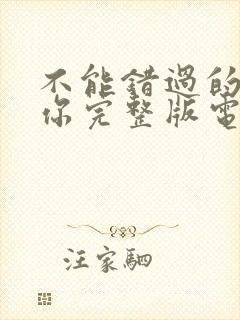 不能错過的
你完整版電
汪家駟